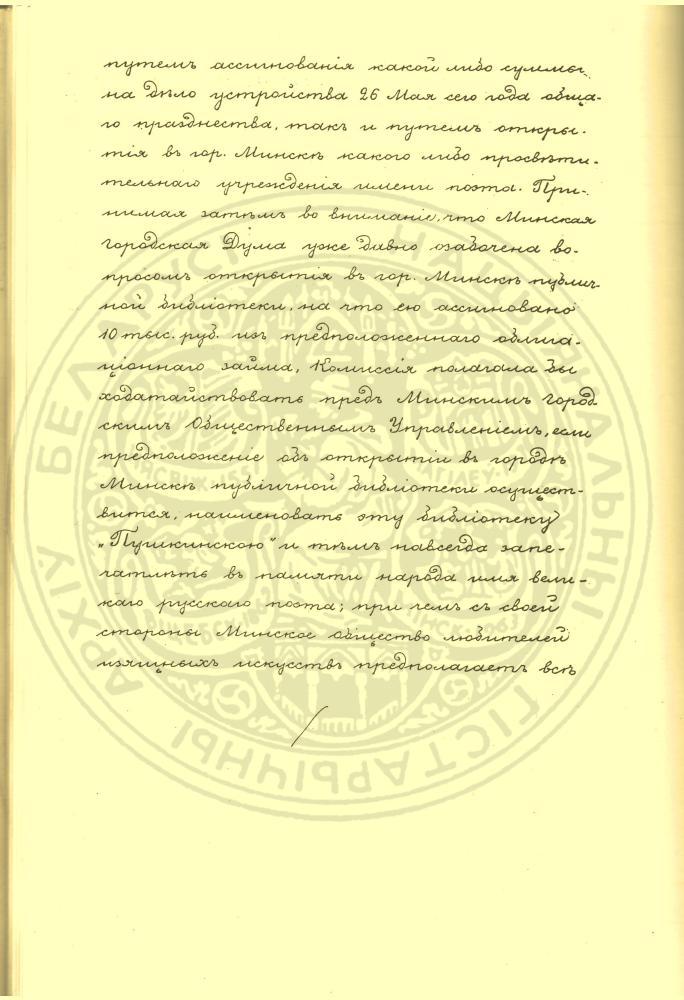 путемъ ассигнованія какой либо суммы
на дѣло устройства 26 Мая сего года обща-
го празднества, такъ и путемъ откры-
тія въ гор. Минскѣ какого либо просвѣти-
тельнаго учрежденія имени поэта. При-
нимая затѣмъ во вниманіе, что Минская
городская Дума уже давно озабочена во-
просомъ открытія въ гор. Минскѣ публич-
ной библіотеки, на что ею ассигновано
10 тыс. руб. изъ предположеннаго облига-
ціоннаго займа, Комиссія полагала бы
ходатайствовать предъ Минскимъ Город-
скимъ Общественнымъ Управленіемъ, если
предположеніе объ открытіи въ городѣ
Минскѣ публичной библіотеки осущест-
вится, наименовать эту библіотеку
„Пушкинскою" и тѣмъ навсегда запе-
чатлѣть въ памяти народа имя вели-
каго русскаго поэта; при чемъ съ своей
стороны Минское общество любителей
изящныхъ искусствъ предполагаетъ всѣ